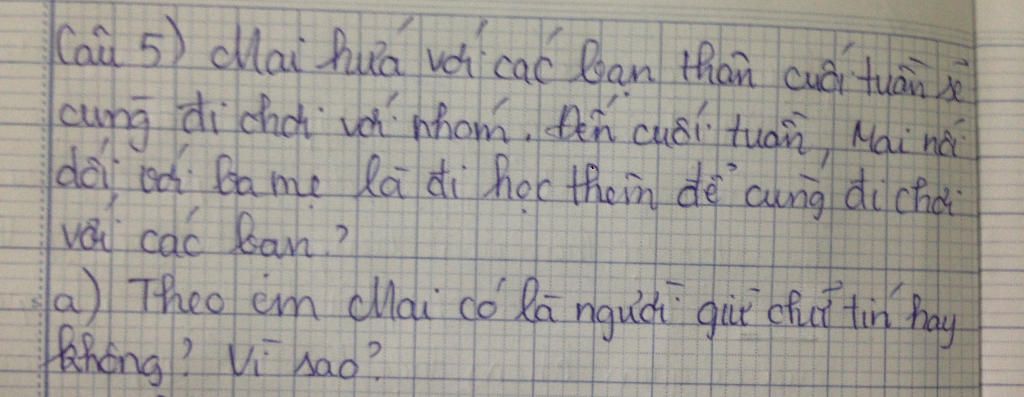 Câu 5) Mai hứa với các bạn thân cuối tuần sẽ
cùng đi chơi với nhóm. Đến cuối tuần, Mai nói
dối với ba mẹ là đi học thêm để cùng đi chơi
với các bạn?
a) Theo em Mai có là người giữ chữ tín hay
không? Vì sao?